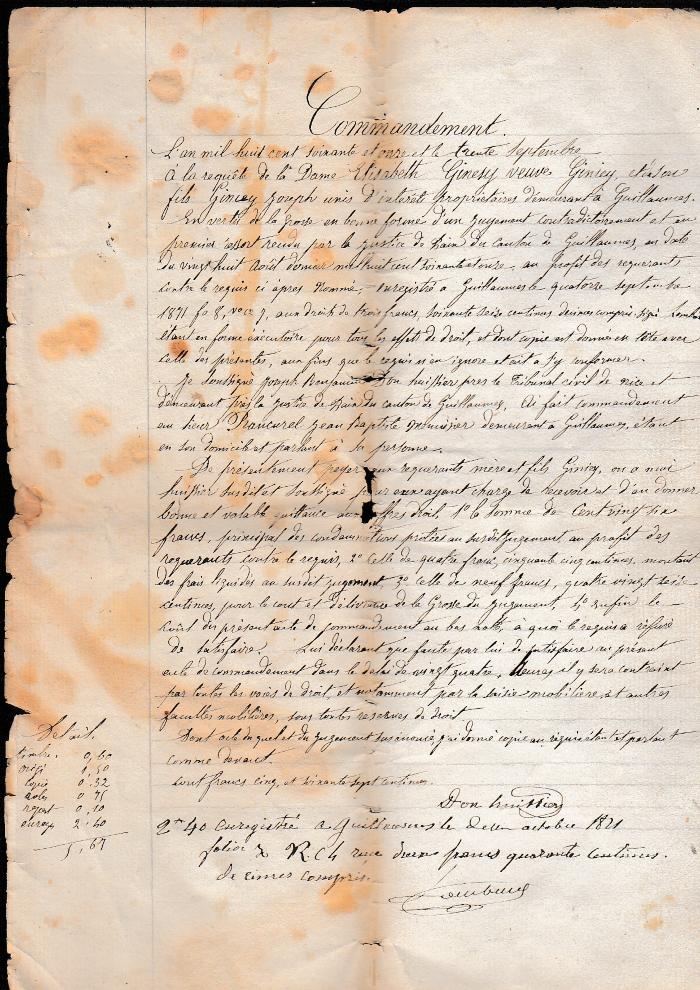 Commandement.
L'an mil huit cent soixante et onze et le trente septembre
à la requête de la Dame Elisabeth Giniey veuve Giniey, et à son
fils Giniey Joseph unis d'intérêt propriétaires demeurant à Guillaumes.
En vertu de la Grosse en bonne forme d'un jugement contradictoirement et en
premier ressort rendu par la Justice de Paix du canton de Guillaumes, en date
du vingt huit Août dernier mil huit cent soixante et onze, au profit des requerants
contre le requis ci après nommé, enregistré à Guillaumes le quatorze septembre
1871 fo 8, vo ce 9, aux droits de trois francs, soixante seize centimes decimes compris. signé
étant en forme éxécutoire pour tous les effets de droit, et dont copie est donnée en tête avec
celle des présentes, aux fins que le requis n'en ignore et ait à s'y conformer.
Je soussigné Joseph Benjamin Don huissier près le Tribunal civil de Nice et
demeurant près la Justice de Paix du canton de Guillaumes, Ai fait commandement
au sieur Jean Baptiste menuisier demeurant à Guillaumes, étant
en son domicile et parlant à sa personne.
De présentement payer aux requerants mère et fils Giniey, ou a moi
huissier susdit et soussigné pour eux ayant charge de recevoir et d'en donner
bonne et valable quittance aux offres droit 1o la somme de Cent vingt six
francs, principal des condamnations portées au susdit jugement au profit des
requerants contre le requis, 2o Celle de quatre francs, cinquante cinq centimes, montant
des frais liquidés au susdit jugement, 3o celle de neuf francs, quatre vingt seize
centimes, pour le cout et délivrance de la Grosse du Jugement, 4o enfin le
coût du présent acte de commandement au bas noté, a quoi le requis a refusé
de satisfaire. Lui déclarant que faute par lui de satisfaire au présent
acte de commandement dans le délai de vingt quatre heures il y sera contraint
par toutes les voies de droit, et notamment par la saisie mobilière, et autres
facultés mobilières, sous toutes reserves de droit
Dont acte duquel et du jugement susénoncé, j'ai donné copie au requis étant et parlant
comme devant.
cout francs cinq, et soixante sept centimes.
Détail
timbre. 0,60
origl 1,50
copie 0.32
0 75
repert 0,10
enregt 2,40
5,67
Don huissier
2 f 40 Enregistré a Guillaumes le deux octobre 1871
folio R. C 4 reçu deux francs quarante centimes.
decimes compris.